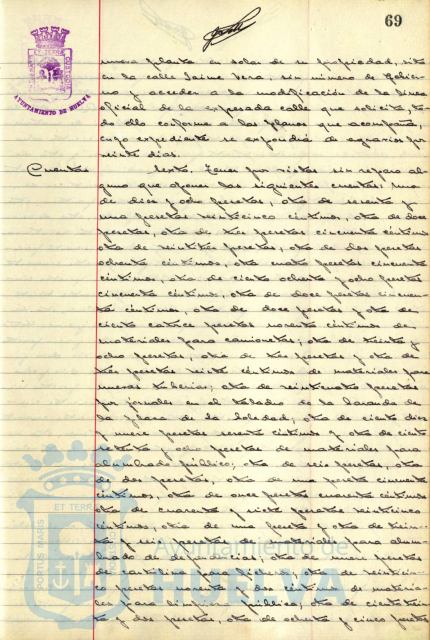 69
AYUNTAMIENTO DE HUELVA
nueva planta en solar de su propiedad, sito
en la calle Jaime Vera, sin número de gobier-
no y acceder a la modificación de la línea
oficial de la expresada calle que solicita, to-
do ello conforme a los planos que acompaña,
cuyo expediente se expondrá de agravios por
veinte días.
Cuentas
Sexto. Tener por vistas sin reparo al-
guno que oponer las siguientes cuentas: una
de diez y ocho pesetas, otra de sesenta y
una pesetas veinticinco céntimos, otra de doce
pesetas, otra de tres pesetas cincuenta céntimos
otra de veintitrés pesetas, otra de dos pesetas
ochenta céntimos, otra cuatro pesetas cincuenta
céntimos, otra de ciento ochenta y ocho pesetas
cincuenta céntimos, otra de doce pesetas cincuen-
ta céntimos, otra de doce pesetas y otra de
ciento catorce pesetas noventa céntimos de
materiales para camionetas; otra de treinta y
ocho pesetas, otra de tres pesetas y otra de
tres pesetas veinte céntimos de materiales para
nuevas tuberías; otra de veinticuatro pesetas
por jornales en el
de la Plaza de la Soledad; otra de ciento diez
y nueve pesetas sesenta céntimos y otra de ciento
setenta y ocho pesetas de materiales para
alumbrado público; otra de seis pesetas, otra
de dos pesetas, otra de una peseta cincuenta
céntimos, otra de once pesetas cuarenta céntimos
otra de cuarenta y siete pesetas veinticinco
céntimos, otra de una peseta y otra de trein-
ta y seis pesetas de materiales para alum-
brado de dependencias; otra de nueve pesetas
de
para
otra de veinticin-
co pesetas noventa y dos céntimos de materia-
les para limpieza pública; otra de ciento trein-
ta y dos pesetas, otra de ochenta y cinco pesetas
PORTUS MARIS
ET TERRAE
Ayuntamiento de
HUELVA